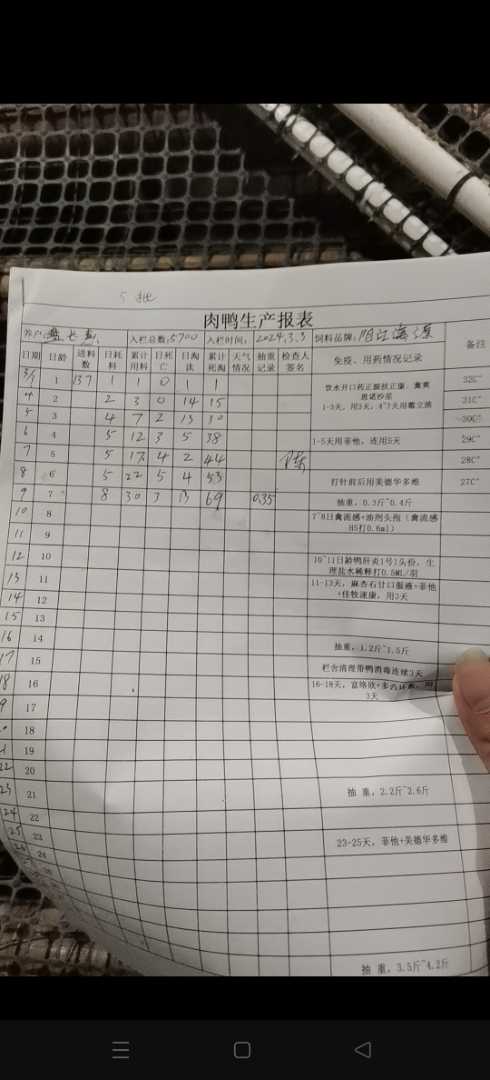 5批
肉鸭生产报表
养户: 入栏总数:5700 入栏时间: 2024.3.3 饲料品牌: 阳江海
日期 日龄 进料数 日耗料 累计用料 日死亡 日淘汰 累计死淘 天气情况 抽重记录 检查人签名 免疫、用药情况记录 备注
3/ 1 137 1 1 0 1 1 饮水开口药正源扶正康、禽爽 32C°
4 2 2 3 0 14 15 1-3天,用3天,4~7天用霉立清 31C°
5 3 4 7 2 13 30 ~30C°
6 4 5 12 3 5 38 1-5天用菲他,连用5天 29C°
7 5 5 17 4 2 44 陈 28C°
8 6 5 22 5 4 53 打针前后用美德华多维 27C°
9 7 8 30 3 13 69 0.35 抽重,0.3斤~0.4斤
10 8 7~8日禽流感+油剂头孢(禽流感H5打0.6ml)
11 9
12 10 10~11日龄鸭肝炎1号1头份,生理盐水稀释打0.5ML/羽
13 11 11-13天,麻杏石甘口服液+菲他+佳牧速康,用3天
14 12
15 13
16 14 抽重,1.2斤~1.5斤
17 15 栏舍清理带鸭消毒连续3天
18 16 16-18天,富络欣+多西环素,用3天
9 17
18
19
22 20
23 21 抽 重,2.2斤~2.6斤
24 22
25 23 23-25天,菲他+美德华多维
24
抽 重,3.5斤~4.2斤